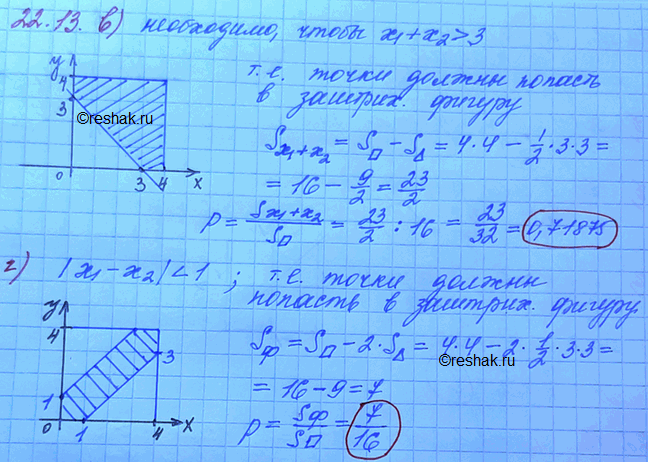 22.13. в) необходимо, чтобы x₁+x₂>3
y
4
3
0
3 4 x
©reshak.ru
т.е. точки должны попасть
в заштрих. фигуру
Sx₁+x₂ = S□ − S△ = 4·4 − 1/2·3·3 =
= 16 − 9/2 = 23/2
P = Sx₁+x₂/S□ = 23/2 : 16 = 23/32 = 0,71875
г) |x₁−x₂|<1 ; т.е. точки должны
попасть в заштрих. фигуру.
y
4
3
1
0 1 4 x
Sф = S□ − 2·S△ = 4·4 − 2·1/2·3·3 =
©reshak.ru
= 16 − 9 = 7
p = Sф/S□ = 7/16